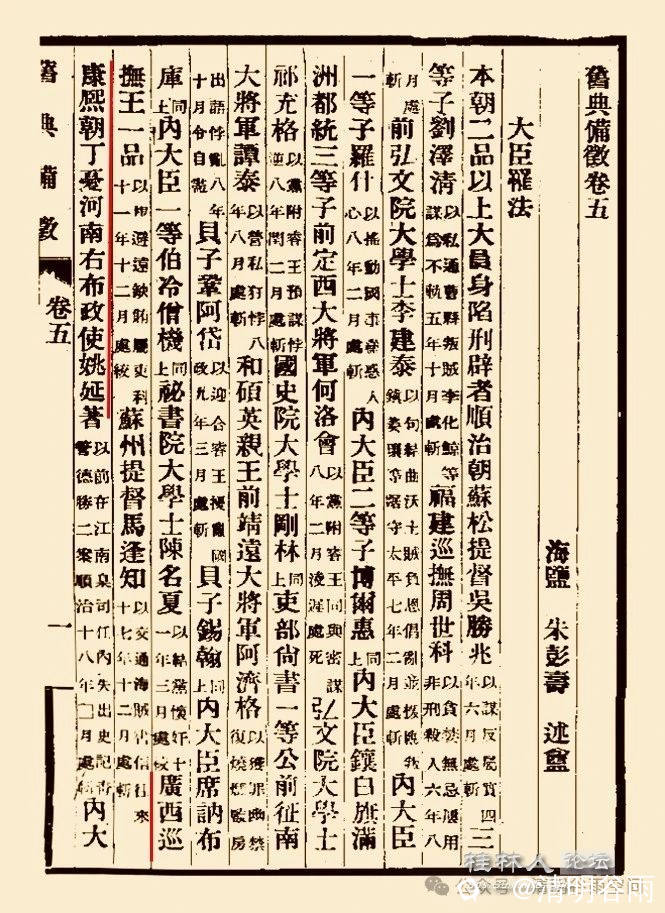 舊典備徵卷五
海鹽 朱彭壽 述盦
大臣罹法
本朝二品以上大員身陷刑辟者順治朝蘇松提督吳勝兆以謀反屬實四年六月處斬三
等子劉澤清以私通曹縣叛賊李化鯨等謀爲不軌五年十月處斬福建巡撫周世科以貪婪無忌屢用非刑殺人六年八
月處斬前弘文院大學士李建泰以句結曲沃土賊負恩倡亂並姜瓖等守太平七年二月處斬內大臣
一等子羅什以搖動國事蠱惑人心八年二月處斬內大臣二等子博爾惠同上內大臣鑲白旗滿
洲都統三等子前定西大將軍何洛會以黨附睿王同與密謀八年二月淩遲處死弘文院大學士
祁充格以黨附睿王預謀悖逆八年閏二月處斬國史院大學士剛林同上吏部尚書一等公前征南
大將軍譚泰以營私狂悖八年八月處斬和碩英親王前靖遠大將軍阿濟格以獲罪幽禁復燒燬監房
出語悖亂八年十月令自盡貝子鞏阿岱以迎合睿王擾亂國政九年三月處斬貝子錫翰同上內大臣席訥布
庫同上內大臣一等伯冷僧機同上祕書院大學士陳名夏以結黨懷奸十一年三月處絞廣西巡
撫王一品以規避遠缺賄屬吏科十一年十二月處絞蘇州提督馬逢知以交通海賊書信往來十七年十二月處斬
康熙朝丁憂河南右布政使姚延著以前在江南臬司任內失出史記青管德勝二案順治十八年□月處絞內大
舊典備徵 卷五 一
桂林人 论坛
公众号
@清明谷雨